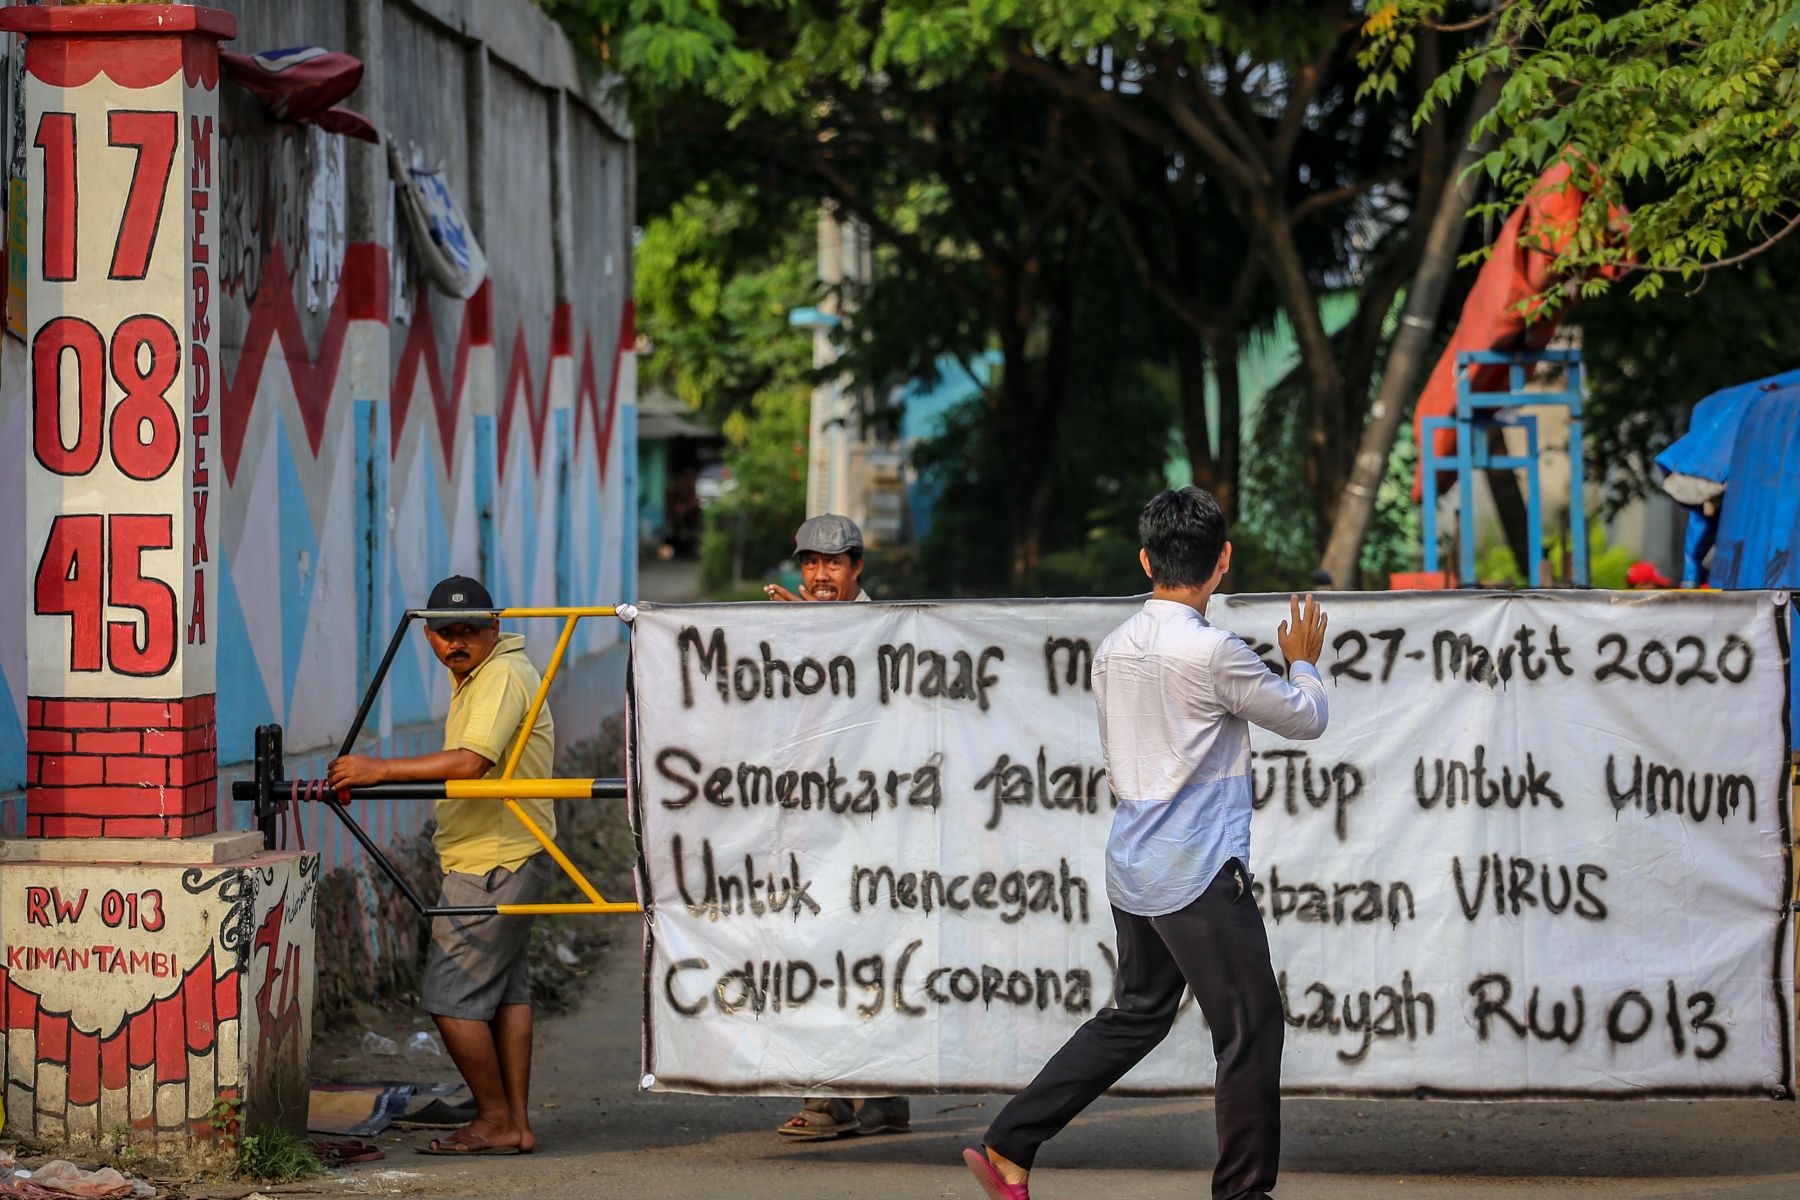 17
08
45
MERDEKA
RW 013
KIMANTAMBI
74
Mohon maaf 27-Martt 2020
Sementara jalan untuk umum
Untuk mencegah VIRUS
COVID-19 (corona) RW 013